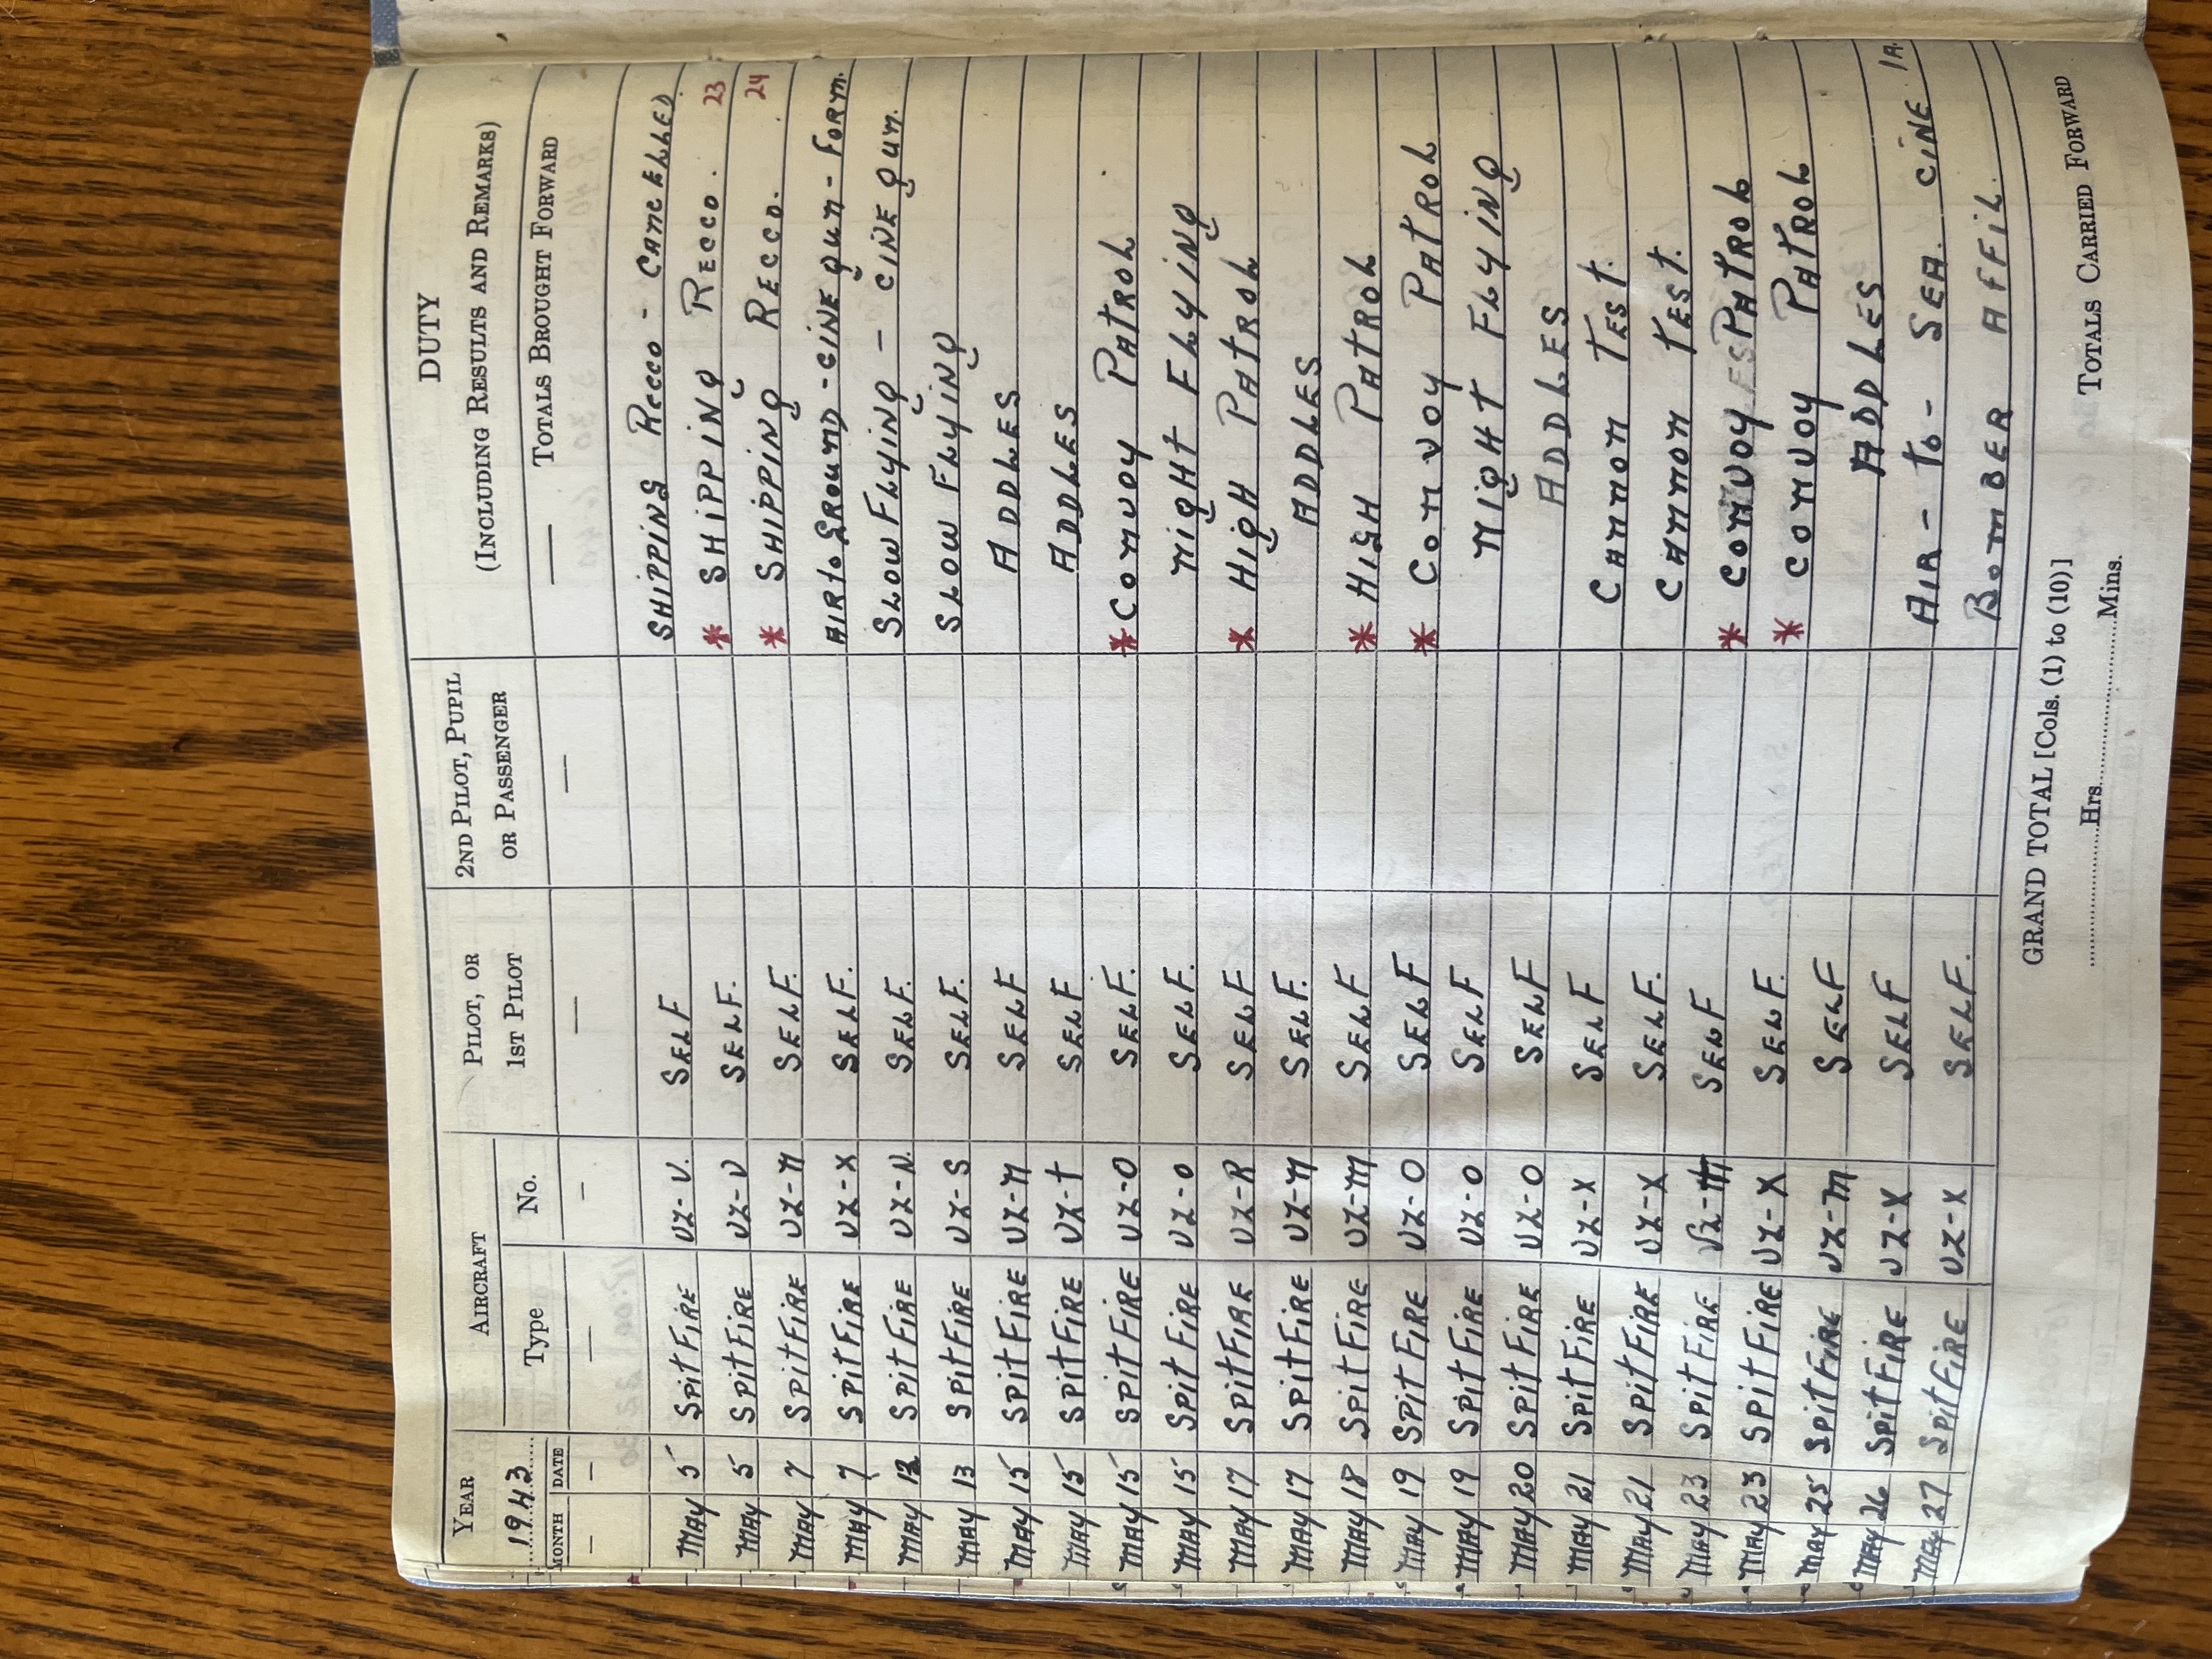 YEAR AIRCRAFT PILOT, OR 2ND PILOT, PUPIL DUTY
1943 Type No. 1ST PILOT OR PASSENGER (INCLUDING RESULTS AND REMARKS)
MONTH DATE
— — — — — — — TOTALS BROUGHT FORWARD
MAY 5 SPitFiRE UZ-V. SELF SHiPPiNG RECCO - CANCELLED
MAY 5 SPitFiRE UZ-V SELF. * SHiPPiNG RECCO. 23
MAY 7 SPitFiRE UZ-N SELF. * SHiPPiNG RECCO. 24
MAY 7 SPitFiRE UZ-X SELF. AIR to GROUND - CiNE GUN - FORM.
MAY SPitFiRE UZ-N. SELF. SLOW FLYiNG - CiNE GUN.
MAY 13 SPitFiRE UZ-S SELF. SLOW FLYiNG
MAY 15 SPitFiRE UZ-N SELF ADDLES
MAY 15 SPitFiRE UZ-t SELF ADDLES
MAY 15 SPitFiRE UZ-O SELF. * CONVOY PAtROL
MAY 15 SPitFiRE UZ-O SELF. NiGHt FLYiNG
MAY 17 SPitFiRE UZ-R SELF * HiGH PAtROL
MAY 17 SPitFiRE UZ-N SELF. ADDLES
MAY 18 SPitFiRE UZ-M SELF * HiGH PAtROL
MAY 19 SPitFiRE UZ-O SELF * CONVOY PAtROL
MAY 19 SPitFiRE UZ-O SELF NiGHt FLYiNG
MAY 20 SPitFiRE UZ-O SELF ADDLES
MAY 21 SPitFiRE UZ-X SELF CANNON TESt.
MAY 21 SPitFiRE UZ-X SELF. CANNON tESt.
MAY 23 SPitFiRE UZ-M SELF * CONVOY PAtROL
MAY 23 SPitFiRE UZ-X SELF. * CONVOY PAtROL
MAY 25 SPitFiRE UZ-M SELF ADDLES
MAY 26 SPitFiRE UZ-X SELF AIR - to - SEA. CiNE 1A.
MAY 27 SPitFiRE UZ-X SELF. BOMBER AFFiL.
GRAND TOTAL [Cols. (1) to (10)]
Hrs. Mins. TOTALS CARRIED FORWARD